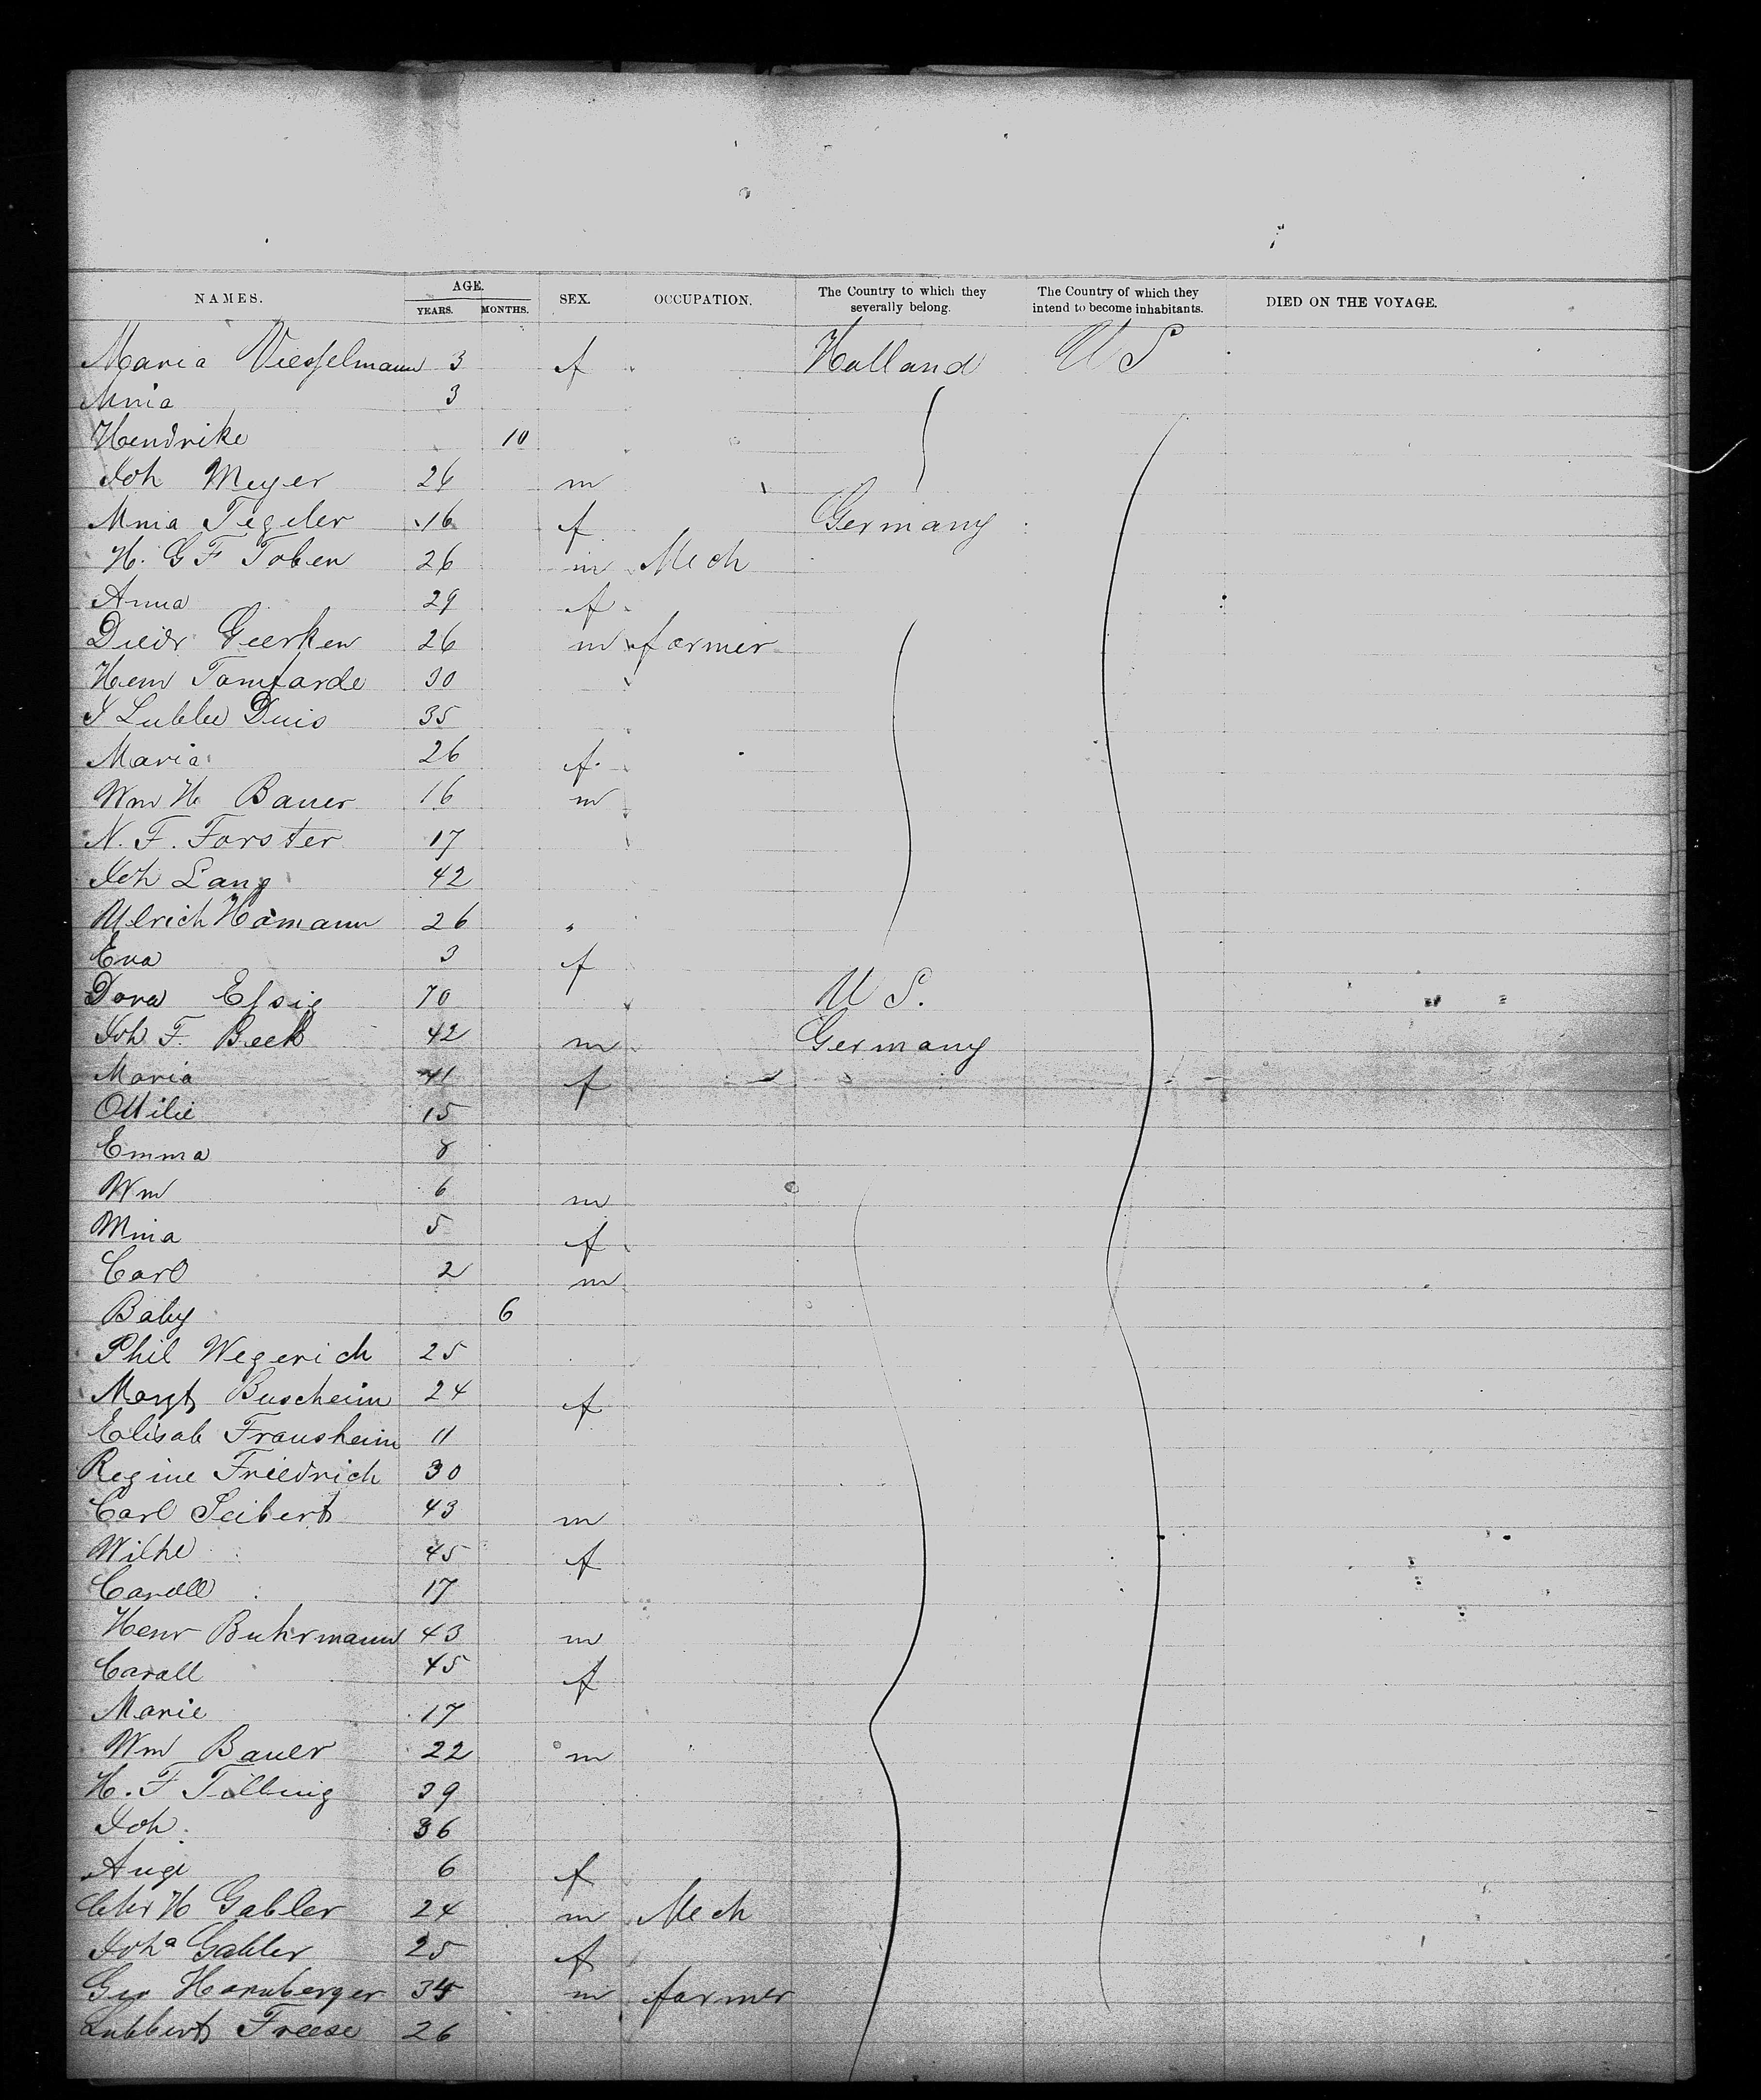 NAMES. AGE. YEARS. MONTHS. SEX. OCCUPATION. The Country to which they severally belong. The Country of which they intend to become inhabitants. DIED ON THE VOYAGE.
Maria Viesselmann 3 f Holland U S
Mnia 3
Hendrike 10
Joh Meyer 26 m
Mnia Tegeler 16 f Germany
H. G F Toben 26 m Mech
Anna 29 f
Diedr Geerken 26 m farmer
Henr Tomfarde 30
J Lubbe Duis 35
Maria 26 f
Wm H Bauer 16 m
N. F. Forster 17
Joh Lang 42
Ulrich Hamann 26 "
Eva 3 f
Dora Essig 70 U S.
Joh F. Beck 42 m Germany
Maria 41 f
Ottilie 15
Emma 8
Wm 6 m
Mina 5 f
Carl 2 m
Baby 6
Phil Wegerich 25
Margt Buscheim 24 f
Elisab Frausheim 11
Regine Friedrich 30
Carl Seibert 43 m
Wilhe 45 f
Caroll 17
Henr Buhrmann 43 m
Carall 45 f
Marie 17
Wm Bauer 22 m
H. F Tilling 39
Joh. 36
Auge 6 f
Chr H Gabler 24 m Mech
Joha Gabler 25 f
Geo Hornberger 35 m farmer
Lubbert Freese 26